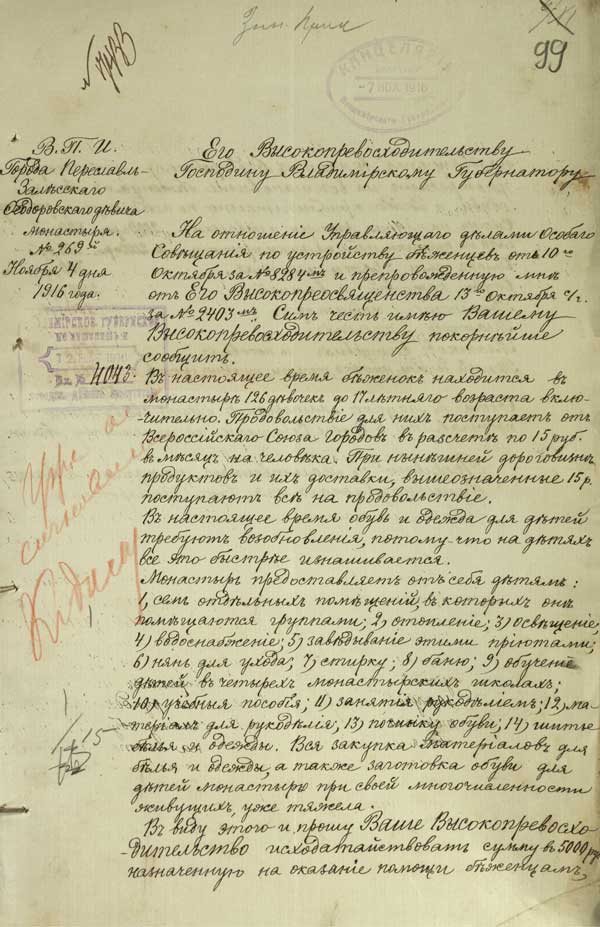 № 7433
99
КАНЦЕЛЯРІЯ
-7 НОЯ 1916
В. П. И.
Города Переславль-
Залѣсскаго
Ѳеодоровскаго дѣвича
монастыря.
№ 269й
Ноября 4 дня
1916 года.
4043.
Его Высокопревосходительству
Господину Владимірскому Губернатору
На отношеніе Управляющаго дѣлами Особаго
Совѣщанія по устройству бѣженцевъ отъ 10го
Октября за № 8284мъ и препровожденную мнѣ
отъ Его Высокопреосвященства 13го Октября с/г.
за № 2403мъ. Симъ честь имѣю Вашему
Высокопревосходительству покорнѣйше
сообщить.
Въ настоящее время бѣженокъ находится въ
монастырѣ 126 дѣвочекъ до 17 лѣтняго возраста вклю-
чительно. Продовольствіе для нихъ поступаетъ отъ
Всероссійскаго Союза Городовъ въ расчетѣ по 15 руб.
въ мѣсяцъ на человѣка. При нынѣшней дороговизнѣ
продуктовъ и ихъ доставки, вышеозначенные 15 р.
поступаютъ всѣ на продовольствіе.
Въ настоящее время обувь и одежда для дѣтей
требуютъ возобновленія, потому-что на дѣтяхъ
все это быстрѣе изнашивается.
Монастырь предоставляетъ отъ себя дѣтямъ:
1, семь отдѣльныхъ помѣщеній, въ которыхъ онѣ
помѣщаются группами; 2) отопленіе; 3) освѣщеніе;
4) водоснабженіе; 5) завѣдываніе этими пріютами;
6) нянь для ухода; 7) стирку; 8) баню; 9) обученіе
дѣтей въ четырехъ монастырскихъ школахъ;
10) учебныя пособія; 11) занятія рукодѣліемъ; 12) ма-
теріалъ для рукодѣлія, 13) починку обуви; 14) шитье
бѣлья и одежды. Вся закупка матеріаловъ для
бѣлья и одежды, а также заготовка обуви для
дѣтей монастырю при своей многочисленности
живущихъ, уже тяжела.
Въ виду этого и прошу Ваше Высокопревосхо-
дительство исходатайствовать сумму въ 5000 руб.
назначенную на оказаніе помощи бѣженцамъ,